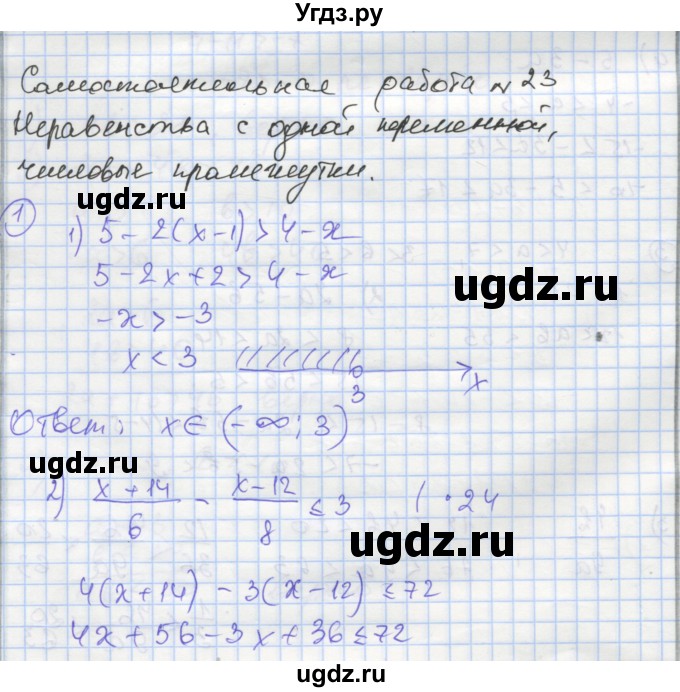 Угдз.ру
Самостоятельная работа № 23
Неравенства с одной переменной,
числовые промежутки.
ugdz.ru
1
1) 5 - 2(x-1) > 4 - x
5 - 2x + 2 > 4 - x
ugdz.ru
-x > -3
x < 3
x
3
Ответ: x ∈ (-∞; 3)
ugdz.ru
2) (x+14)/6 - (x-12)/8 ≤ 3 | · 24
ugdz.ru
4(x+14) - 3(x-12) ≤ 72
4x + 56 - 3x + 36 ≤ 72
ugdz.ru